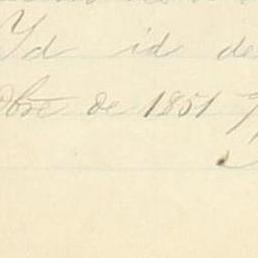 Yd id de
Obre de 1851